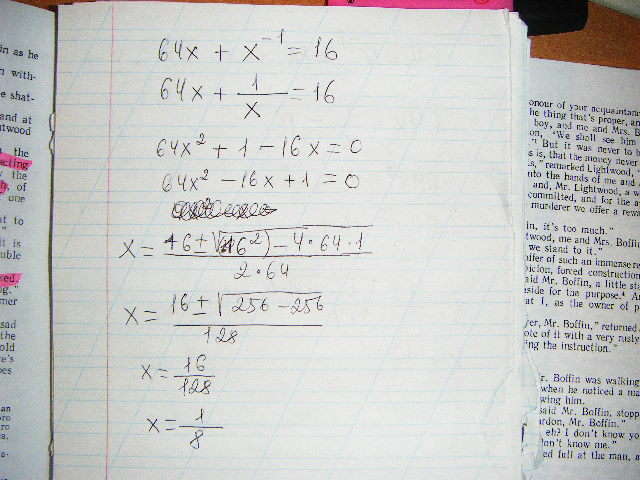 in as he
n with-
e shat-
and at
ntwood
the
acting
y the
h, of
one
at to
"
it is
uble
ked.
g."
mer
sad
the
old
e's
oes
an
oro
ro
a.
s-
64x + x^-1 = 16
64x + 1/x = 16
64x² + 1 - 16x = 0
64x² - 16x + 1 = 0
x = 16 ± √(16²) - 4·64·1 / 2·64
x = 16 ± √256 - 256 / 128
x = 16/128
x = 1/8
onour of your acquaintanc
he thing that's proper, an
boy, and me and Mrs. B
on, "We shall see him
" But it was never to b
s is, that the money never
s," remarked Lightwood, "
nto the hands of me and
and, Mr. Lightwood, a w
committed, and for the a
murderer we offer a rewa
in, it's too much."
twood, me and Mrs. Boffin
we stand to it."
offer of such an immense re
picion, forced construction
aid Mr. Boffin, a little sta
side for the purpose. An
at I, as the owner of p
yer, Mr. Boffin," returned
ote of it with a very rusty
ing the instruction."
r. Boffin was walking
when he noticed a ma
wing him.
said Mr. Boffin, stopp
ardon, Mr. Boffin."
eh? I don't know yo
don't know me."
ed full at the man, a